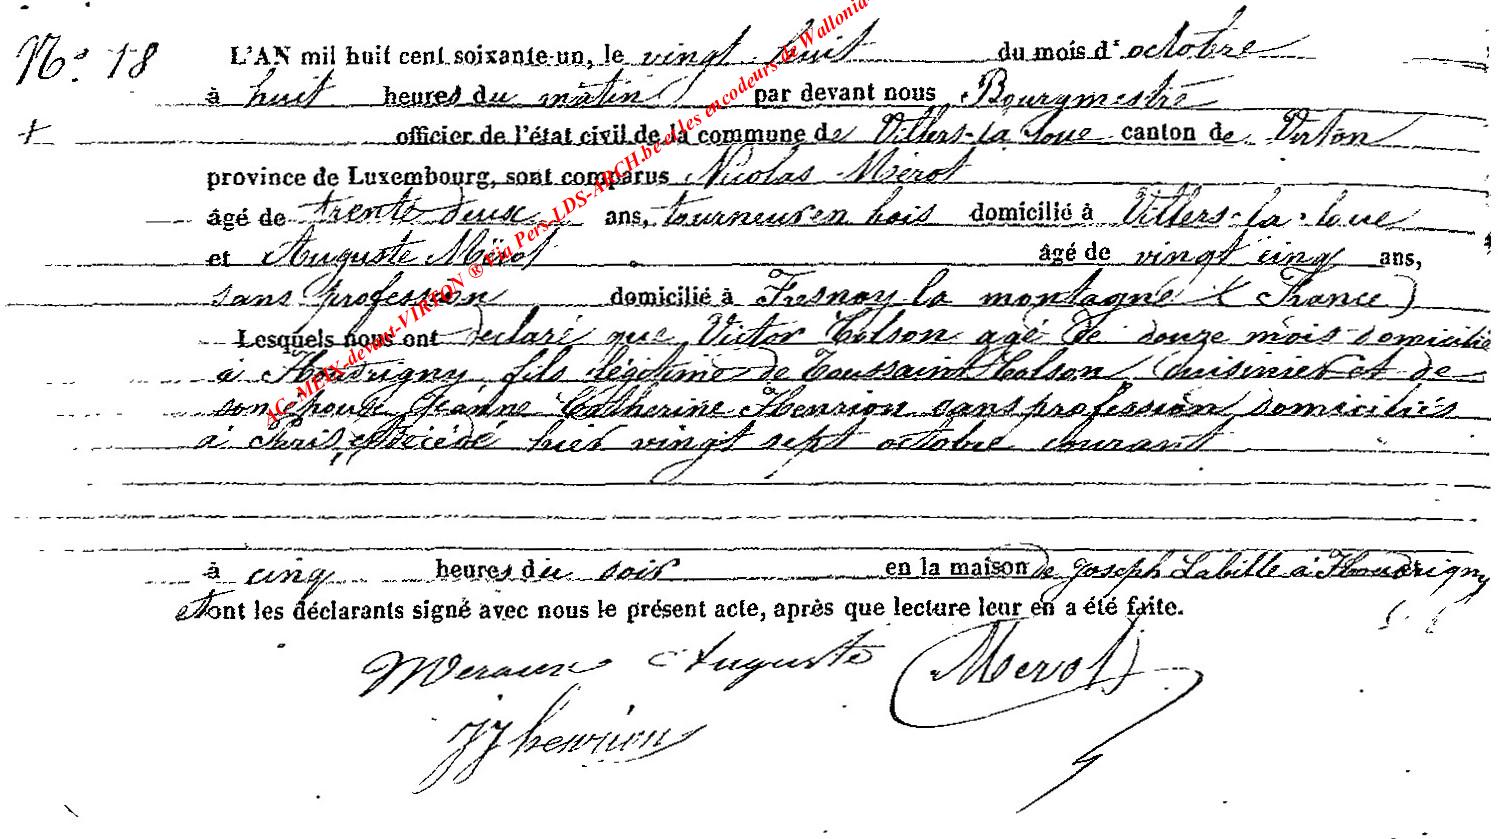 N° 18 L'AN mil huit cent soixante-un, le vingt huit du mois d' octobre
à huit heures du matin par devant nous Bourgmestre
officier de l'état civil de la commune de Villers-la-Loue canton de Virton
province de Luxembourg, sont comparus Nicolas Mérot
âgé de trente deux ans, tourneur en bois domicilié à Villers-la-Loue
et Auguste Mérot âgé de vingt cinq ans,
sans profession domicilié à Fresnoy la montagne (France)
Lesquels nous ont declaré que Victor Colson agé de douze mois domicilié
à Houdrigny, fils légitime de Toussaint Colson, Cuisinier et de
son epouse Jeanne Catherine Henrion sans profession domiciliés
à Paris, est décédé hier vingt sept octobre courant
à cinq heures du soir en la maison de Joseph Labille à Houdrigny
et ont les déclarants signé avec nous le présent acte, après que lecture leur en a été faite.
Auguste Merot
JJ henrion
AC-MEIX-devant-VIRTON ® Via Pers-LDS-ARCH.be-elles encodeurs de Wallonia